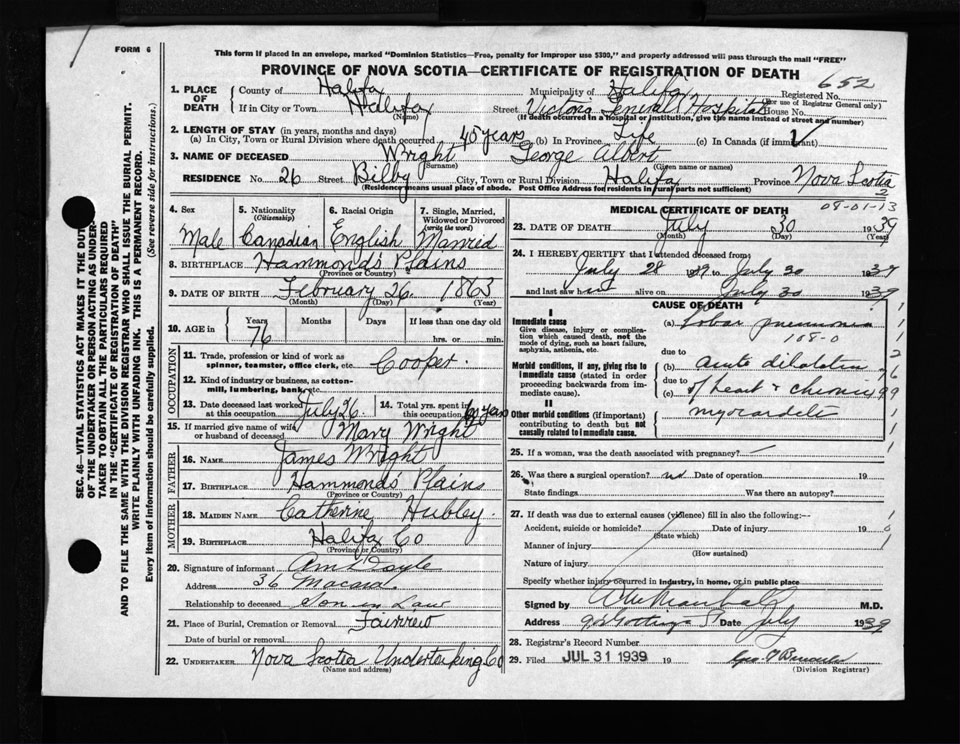 FORM 6
This form if placed in an envelope, marked "Dominion Statistics—Free, penalty for improper use $300," and properly addressed will pass through the mail "FREE"
PROVINCE OF NOVA SCOTIA—CERTIFICATE OF REGISTRATION OF DEATH
652
1. PLACE OF DEATH County of Halifax Municipality of Halifax Registered No.
(For use of Registrar General only)
If in City or Town Halifax Street Victoria General Hospital House No.
(Name) (If death occurred in a hospital or institution, give the name instead of street and number)
2. LENGTH OF STAY (in years, months and days)
(a) In City, Town or Rural Division where death occurred 45 years (b) In Province Life (c) In Canada (if immigrant)
3. NAME OF DECEASED Wright George Albert
(Surname) (Given name or names)
RESIDENCE No. 26 Street Bilby City, Town or Rural Division Halifax Province Nova Scotia
(Residence means usual place of abode. Post Office Address for residents in rural parts not sufficient)
2
08-01-13
4. Sex Male
5. Nationality (Citizenship) Canadian
6. Racial Origin English
7. Single, Married, Widowed or Divorced (write the word) Married
8. BIRTHPLACE Hammonds Plains
(Province or Country)
9. DATE OF BIRTH February 26 1863
(Month) (Day) (Year)
10. AGE in Years Months Days If less than one day old
76 hrs. or min.
OCCUPATION
11. Trade, profession or kind of work as spinner, teamster, office clerk, etc. Cooper
12. Kind of industry or business, as cotton-mill, lumbering, bank, etc.
13. Date deceased last worked at this occupation July 26. 14. Total yrs. spent in this occupation 60 years
15. If married give name of wife or husband of deceased Mary Wright
FATHER
16. NAME James Wright
17. BIRTHPLACE Hammonds Plains
(Province or Country)
MOTHER
18. MAIDEN NAME Catherine Hubley.
19. BIRTHPLACE Halifax Co
(Province or Country)
20. Signature of informant Doyle
Address 36 Macara
Relationship to deceased Son in Law
21. Place of Burial, Cremation or Removal Fairview
Date of burial or removal
22. UNDERTAKER Nova Scotia Undertaking Co
(Name and address)
MEDICAL CERTIFICATE OF DEATH
23. DATE OF DEATH July 30 1939
(Month) (Day) (Year)
24. I HEREBY CERTIFY that I attended deceased from
July 28 1939 to July 30 1939
and last saw him alive on July 30 1939
CAUSE OF DEATH
I
Immediate cause
Give disease, injury or complication which caused death, not the mode of dying, such as heart failure, asphyxia, asthenia, etc.
(a) Lobar pneumonia
108-0
due to
Morbid conditions, if any, giving rise to immediate cause (stated in order proceeding backwards from immediate cause).
(b) acute dilatation
due to
(c) of heart & chronic
myocarditis
II
Other morbid conditions (if important) contributing to death but not causally related to immediate cause.
25. If a woman, was the death associated with pregnancy?
26. Was there a surgical operation? no Date of operation 19
State findings Was there an autopsy?
27. If death was due to external causes (violence) fill in also the following:—
Accident, suicide or homicide? Date of injury 19
(State which)
Manner of injury
(How sustained)
Nature of injury
Specify whether injury occurred in industry, in home, or in public place
Signed by M.D.
Address Gottingen St Date July 1939
28. Registrar's Record Number
29. Filed JUL 31 1939 19
(Division Registrar)
SEC. 46—VITAL STATISTICS ACT MAKES IT THE DUTY
OF THE UNDERTAKER OR PERSON ACTING AS UNDER-
TAKER TO OBTAIN ALL THE PARTICULARS REQUIRED
IN THE "CERTIFICATE OF REGISTRATION OF DEATH"
AND TO FILE THE SAME WITH THE DIVISION REGISTRAR WHO SHALL ISSUE THE BURIAL PERMIT.
WRITE PLAINLY WITH UNFADING INK. THIS IS A PERMANENT RECORD.
Every item of information should be carefully supplied. (See reverse side for instructions.)